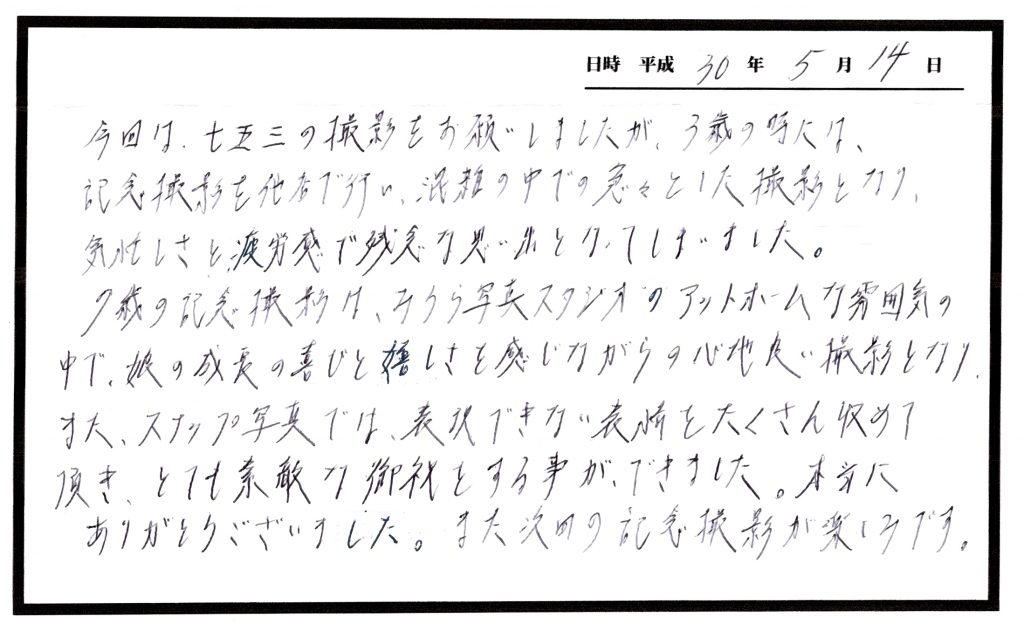 日時 平成 30 年 5 月 14 日
今回は、七五三の撮影をお願いしましたが、3歳の時には、
記念撮影を他店で行い、混雑の中での急々とした撮影となり、
気忙しさと疲労感で残念な思い出となってしまいました。
7歳の記念撮影は、みうら写真スタジオのアットホームな雰囲気の
中で、娘の成長の喜びと嬉しさを感じながらの心地良い撮影となり、
また、スナップ写真では、表現できない表情をたくさん収めて
頂き、とても素敵な御祝をする事ができました。本当に
ありがとうございました。また次回の記念撮影が楽しみです。